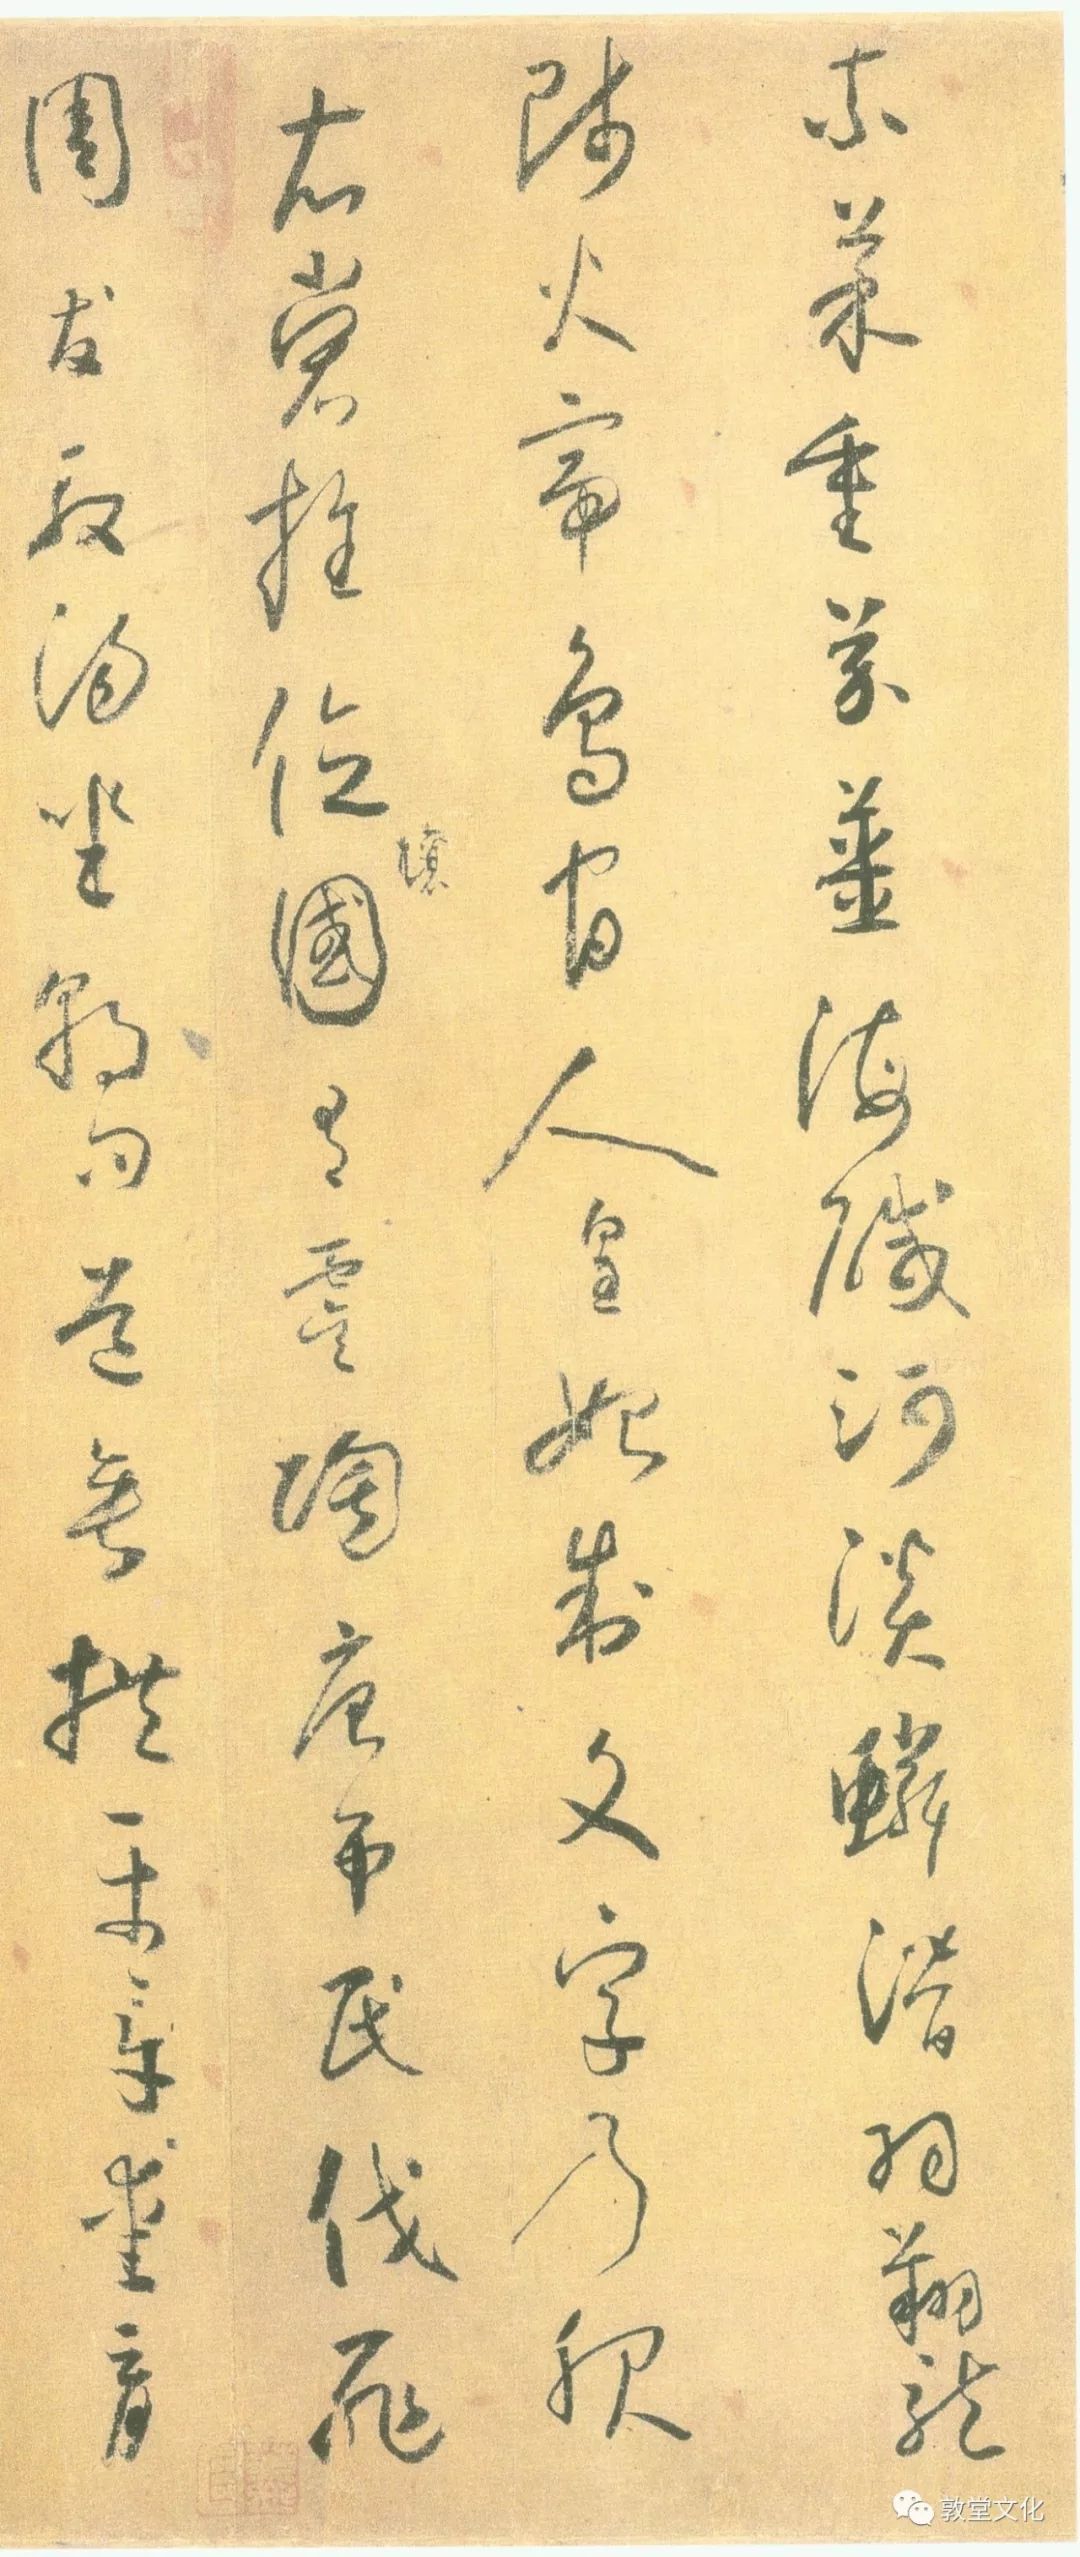 柰菜重芥薑海鹹河淡鱗潛羽翔龍
師火帝鳥官人皇始制文字乃服
衣裳推位讓國有虞陶唐弔民伐罪
周發殷湯坐朝問道垂拱平章愛育
敦堂文化